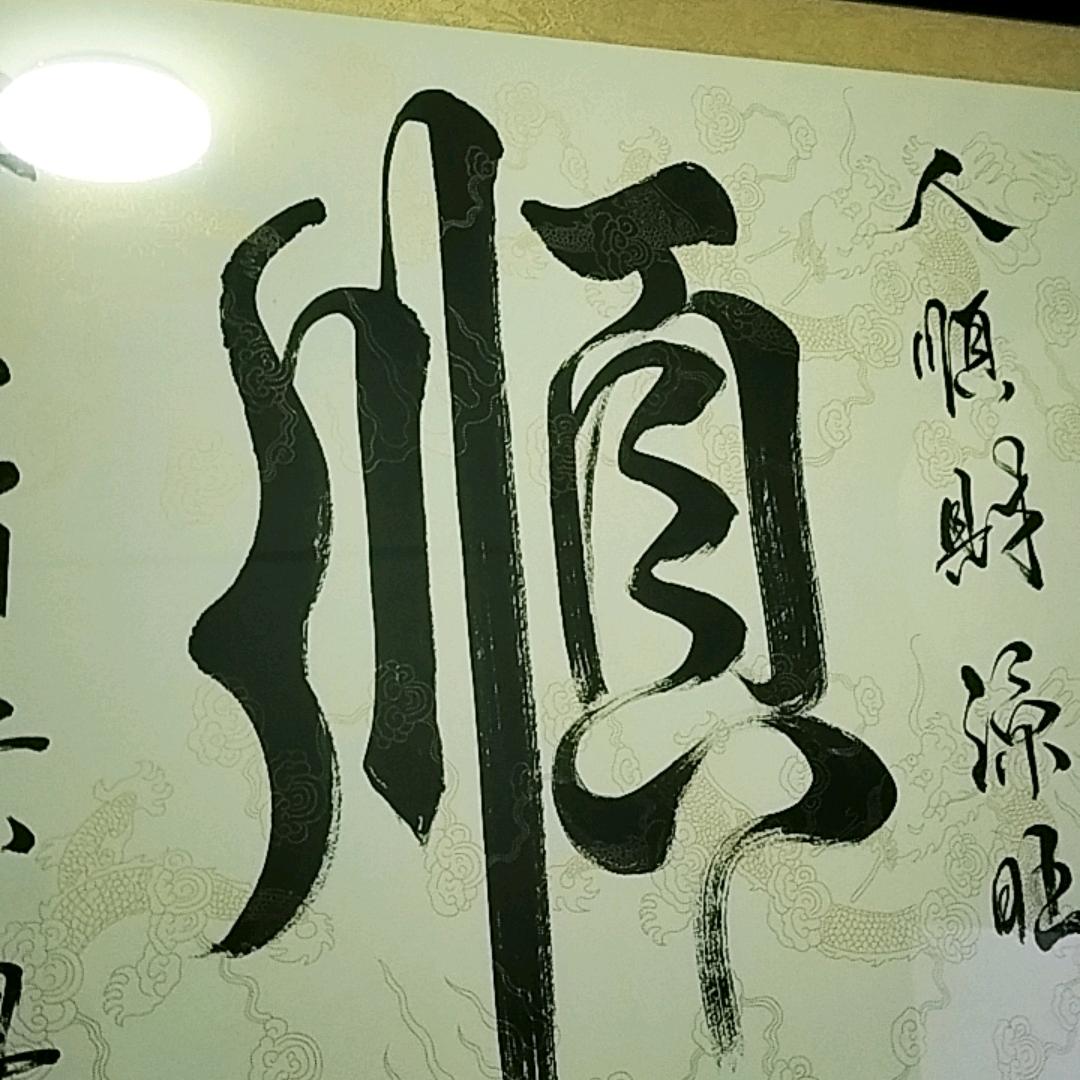 人順財源旺
順